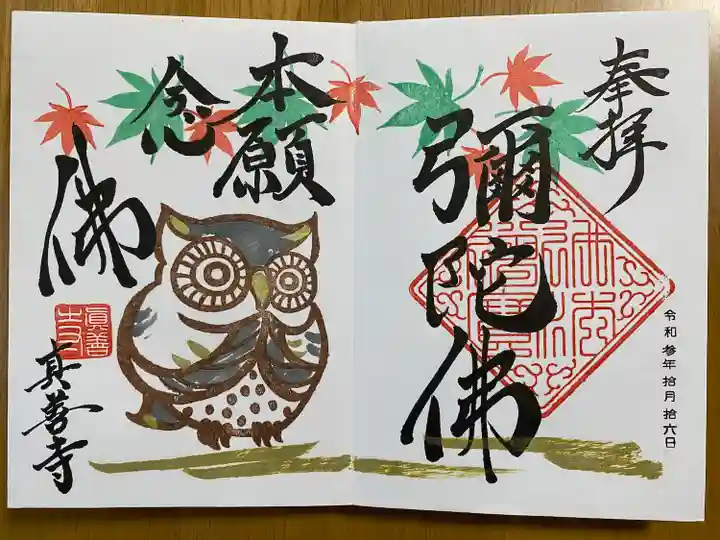 奉拝
彌陀佛
令和参年拾月拾六日
本願
念
佛
眞善
寺
真善寺